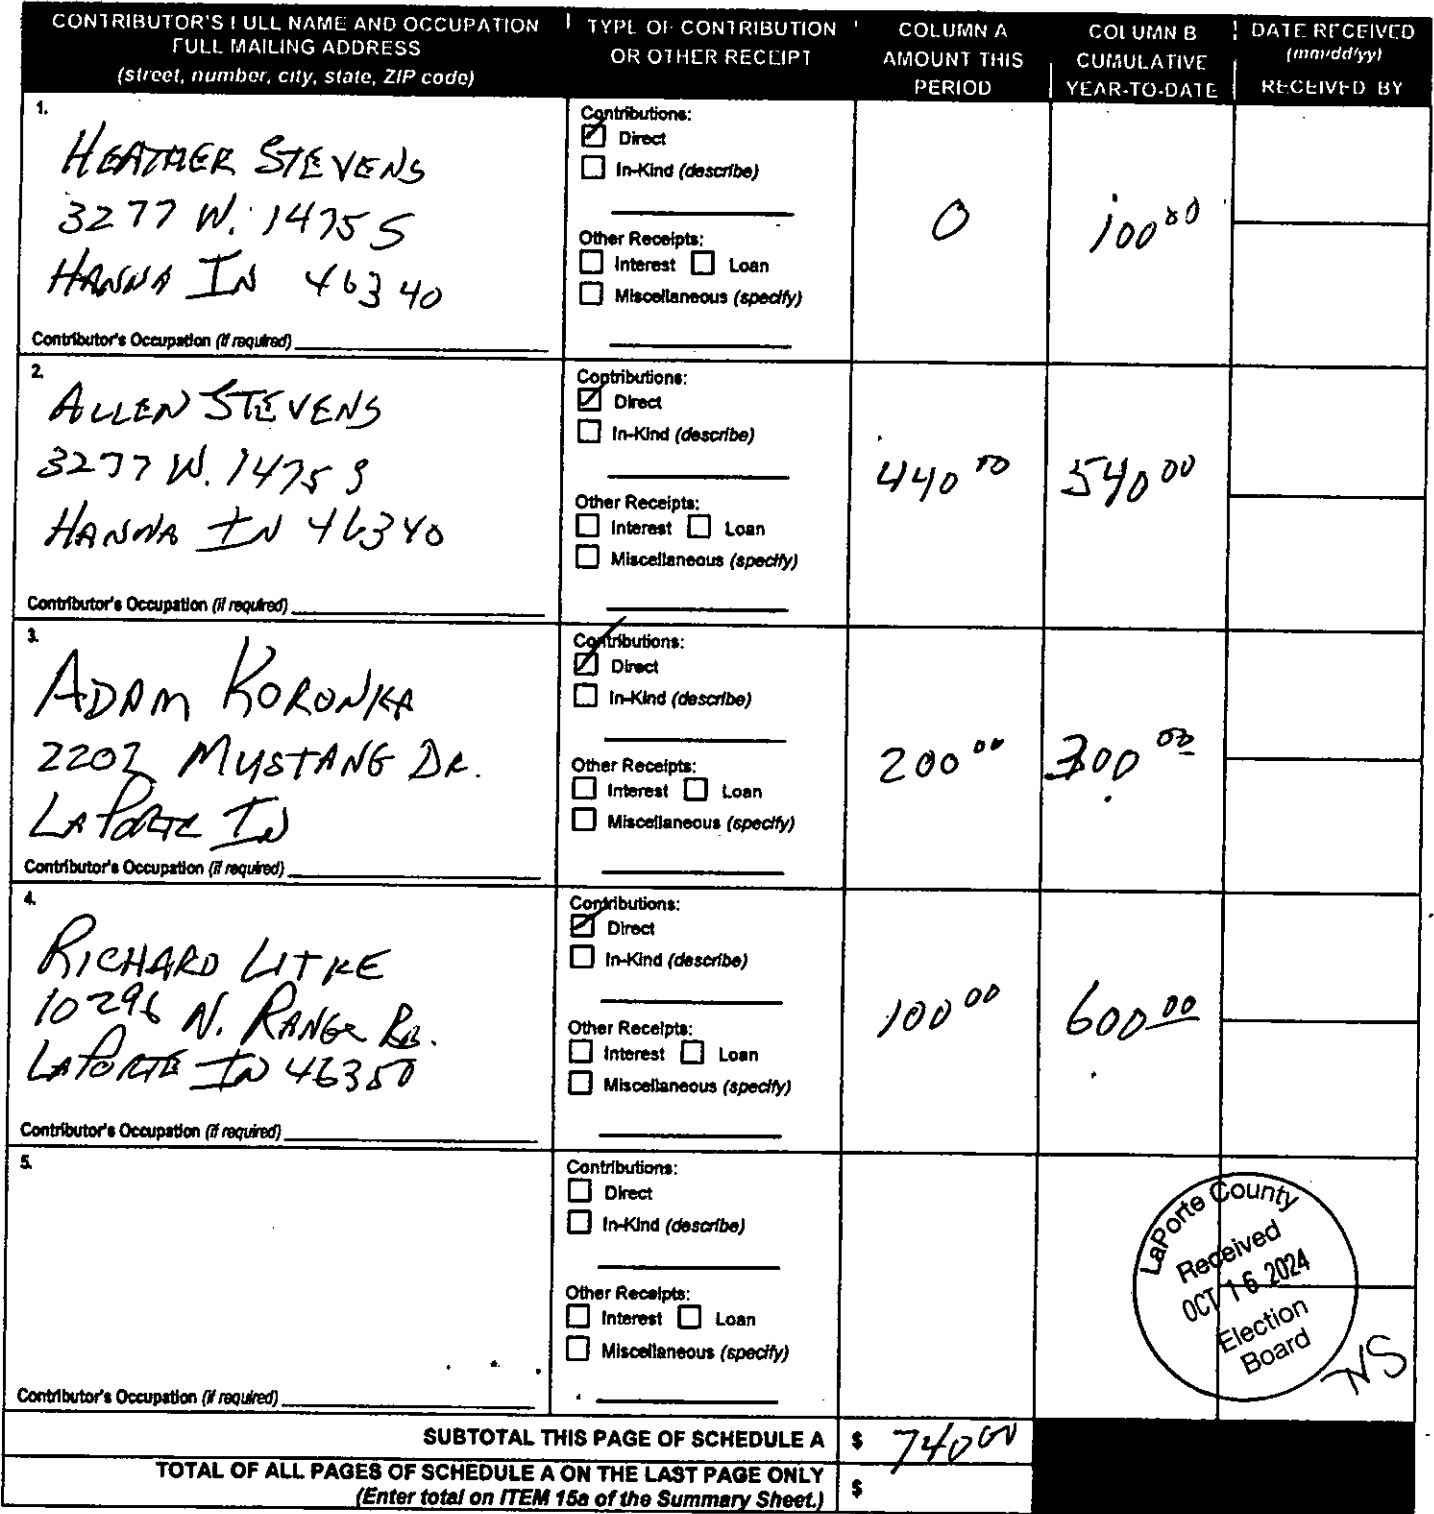 CONTRIBUTOR'S FULL NAME AND OCCUPATION
FULL MAILING ADDRESS
(street, number, city, state, ZIP code)
TYPE OF CONTRIBUTION
OR OTHER RECEIPT
COLUMN A
AMOUNT THIS
PERIOD
COLUMN B
CUMULATIVE
YEAR-TO-DATE
DATE RECEIVED
(mm/dd/yy)
RECEIVED BY
1.
HEATHER STEVENS
3277 W. 1475 S
HANNA IN 46340
Contributor's Occupation (if required)
Contributions:
Direct
In-Kind (describe)
Other Receipts:
Interest Loan
Miscellaneous (specify)
0
100 00
2.
ALLEN STEVENS
3277 W. 1475 S
HANNA IN 46340
Contributor's Occupation (if required)
Contributions:
Direct
In-Kind (describe)
Other Receipts:
Interest Loan
Miscellaneous (specify)
440 00
540 00
3.
ADAM KORONKA
2202 MUSTANG DR.
LAPORTE IN
Contributor's Occupation (if required)
Contributions:
Direct
In-Kind (describe)
Other Receipts:
Interest Loan
Miscellaneous (specify)
200 00
300 00
4.
RICHARD LITKE
10296 N. RANGE RD.
LAPORTE IN 46350
Contributor's Occupation (if required)
Contributions:
Direct
In-Kind (describe)
Other Receipts:
Interest Loan
Miscellaneous (specify)
100 00
600 00
5.
Contributor's Occupation (if required)
Contributions:
Direct
In-Kind (describe)
Other Receipts:
Interest Loan
Miscellaneous (specify)
LaPorte County
Received
OCT 16 2024
Election
Board
NS
SUBTOTAL THIS PAGE OF SCHEDULE A $ 740 00
TOTAL OF ALL PAGES OF SCHEDULE A ON THE LAST PAGE ONLY
(Enter total on ITEM 15a of the Summary Sheet.) $